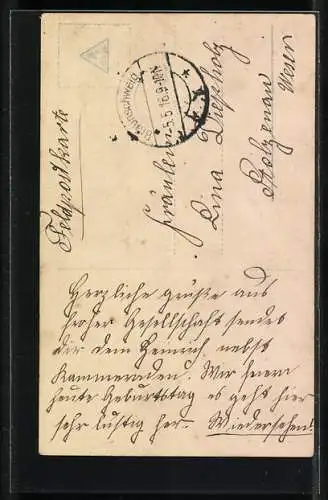 Feldpostkarte
Braunschweig
5.5.16.9-10V
Fräulein
Lina Diepholz
Stolzenau
Weser
Herzliche grüße aus
froher Gesellschaft sendet
dir dein Heinrich nebst
Kammeraden. Wir feiern
heute Geburtstag es geht hier
sehr lustig her. Wiedersehen!